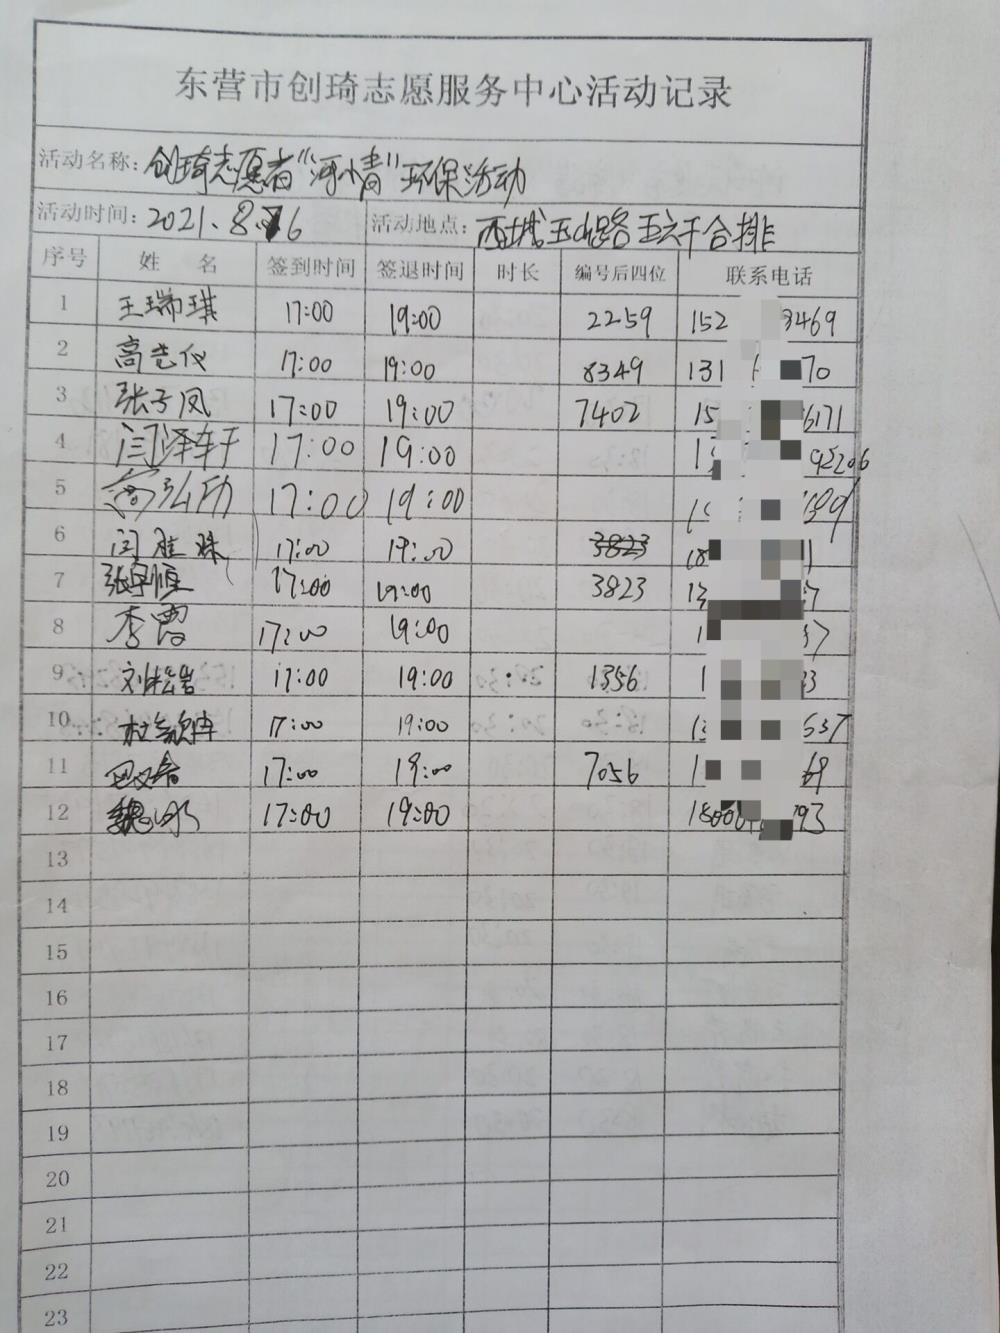 东营市创琦志愿服务中心活动记录
活动名称: 创琦志愿者“河小青”环保活动
活动时间: 2021.8.16 活动地点: 西城 路 五六干合排
序号 姓 名 签到时间 签退时间 时长 编号后四位 联系电话
1 王瑞琪 17:00 19:00 2259 152 3469
2 高艺仪 17:00 19:00 8349 131 70
3 张子凤 17:00 19:00 7402 15 6171
4 闫泽轩 17:00 19:00 1
5 17:00 19:00 1
6 闫雅姝 17:00 19:00 3823 18 1
7 张卓恒 17:00 19:00 3823 13 7
8 李霄 17:00 19:00 1 37
9 刘松岩 17:00 19:00 1356 1 33
10 17:00 19:00 13 537
11 17:00 19:00 7056 1 69
12 魏 17:00 19:00 1800 793
13
14
15
16
17
18
19
20
21
22
23